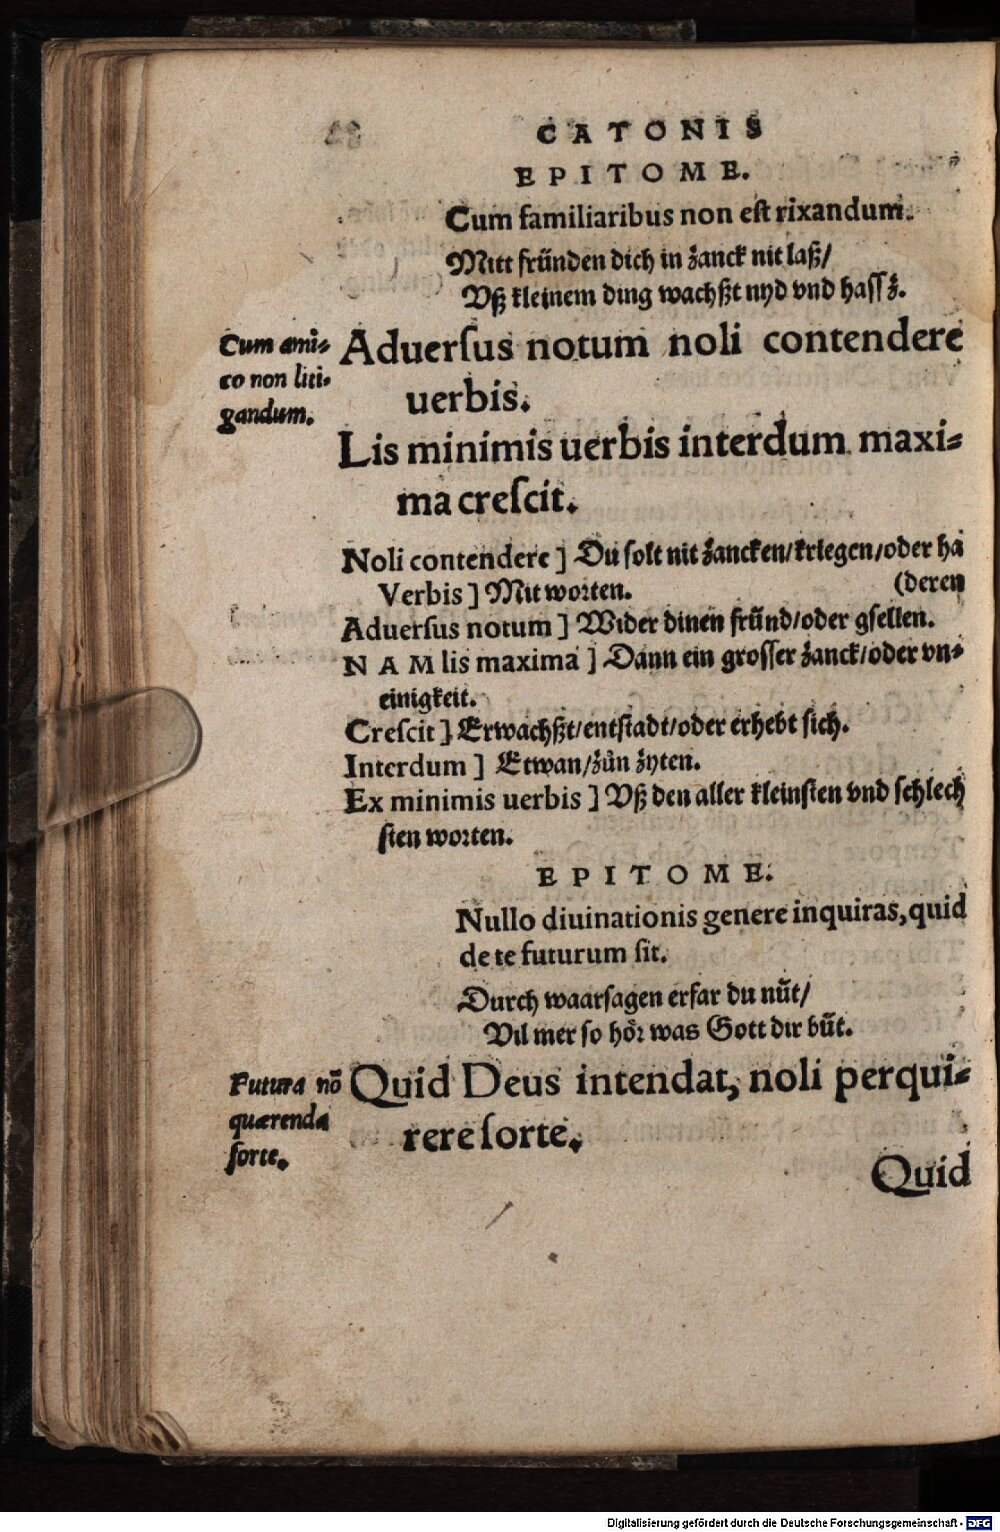 CATONIS
EPITOME.
Cum familiaribus non eſt rixandum.
Mitt fründen dich in zanck nit laß/
Vß kleinem ding wachßt nyd vnd haſſz.
Cum ami⸗
co non liti⸗
gandum.
Aduerſus notum noli contendere
uerbis.
Lis minimis uerbis interdum maxi⸗
ma creſcit.
Noli contendere] Du ſolt nit zancken/kriegen/oder ha
Verbis] Mit worten. (deren
Aduerſus notum] Wider dinen fründ/oder gſellen.
NAM lis maxima] Dann ein groſſer zanck/oder vn⸗
einigkeit.
Creſcit] Erwachßt/entſtadt/oder erhebt ſich.
Interdum] Etwan/zůn zyten.
Ex minimis uerbis] Vß den aller kleinſten vnd ſchlech
ſten worten.
EPITOME.
Nullo diuinationis genere inquiras, quid
de te futurum ſit.
Durch waarſagen erfar du nüt/
Vil mer ſo hör was Gott dir büt.
Futura nō
quærenda
ſorte.
Quid Deus intendat, noli perqui⸗
rere ſorte.
Quid
Digitalisierung gefördert durch die Deutsche Forschungsgemeinschaft - DFG